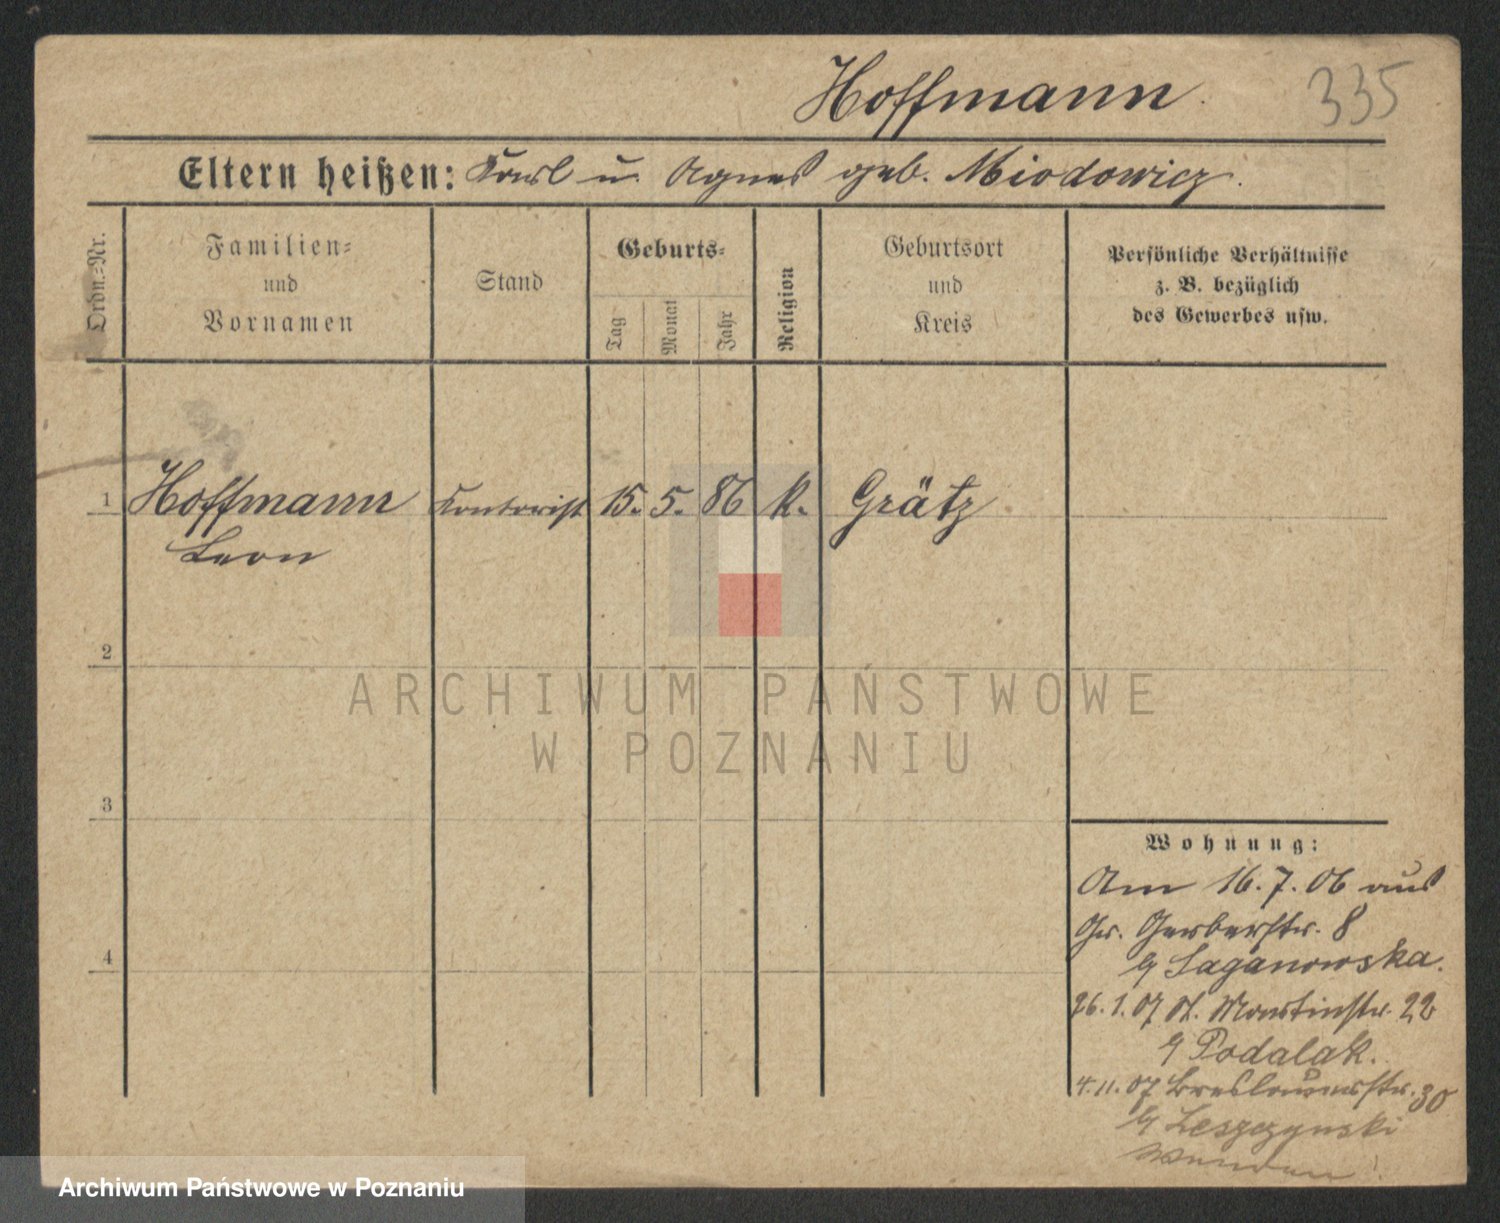 Hoffmann
335
Eltern heißen: Karl u. Agnes geb. Miodowicz.
Ordn.-Nr.
Familien-
und
Vornamen
Stand
Geburts-
Tag
Monat
Jahr
Religion
Geburtsort
und
Kreis
Persönliche Verhältnisse
z. B. bezüglich
des Gewerbes usw.
1 Hoffmann Kontorist 15. 5. 86 k. Grätz
Leon
2
3
4
Wohnung:
Am 16.7.06 aus
Gr. Gerberstr. 8
Saganowska.
26.1.07 St. Martinstr. 22
Podalak.
4.11.07 Breslauerstr. 30
Leszczynski
ARCHIWUM PAŃSTWOWE
W POZNANIU
Archiwum Państwowe w Poznaniu